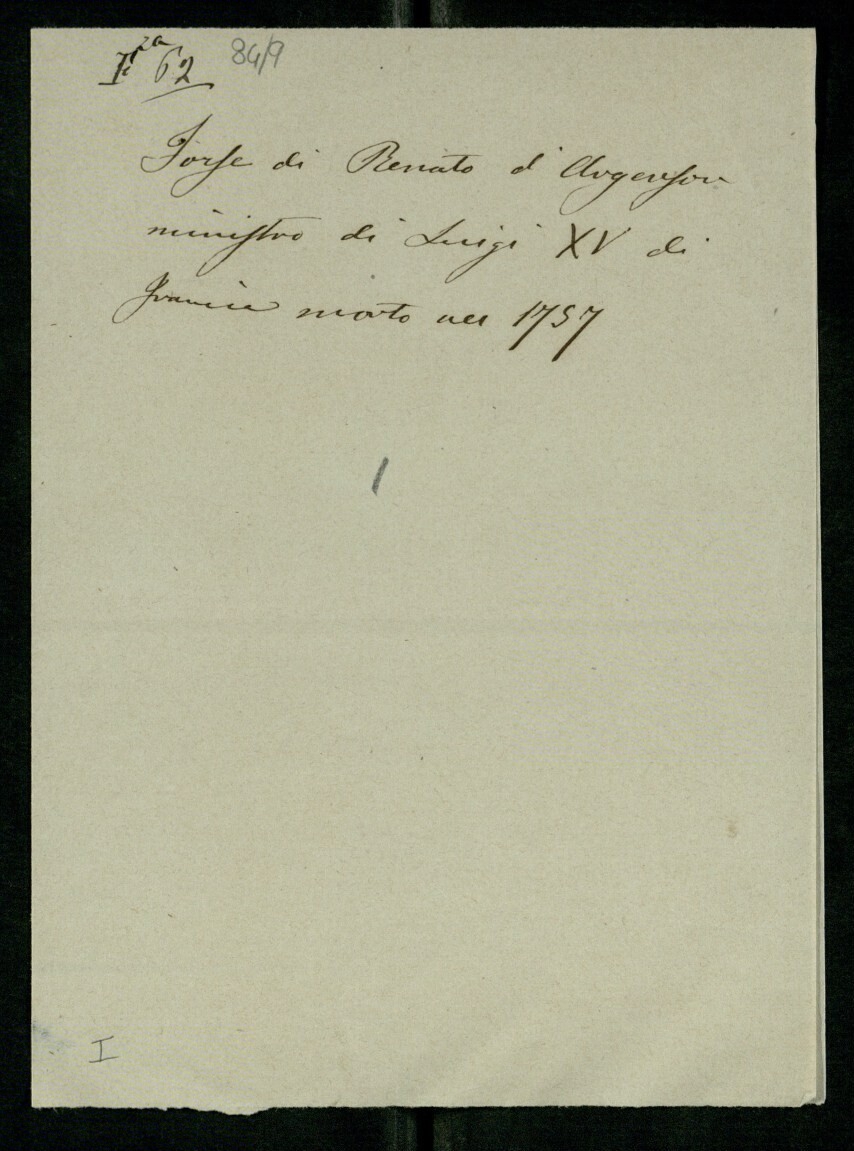 62 84/9
Forse di Renato d'Argenson
ministro di Luigi XV di
Francia morto nel 1757
I